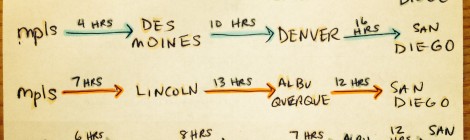 DIEGO
mpls 4 HRS DES MOINES 10 HRS DENVER 16 HRS SAN DIEGO
mpls 7 HRS LINCOLN 13 HRS ALBU QUERQUE 12 HRS SAN DIEGO
6 HRS 8 HRS 7 HRS ALBU 12 HRS SAN